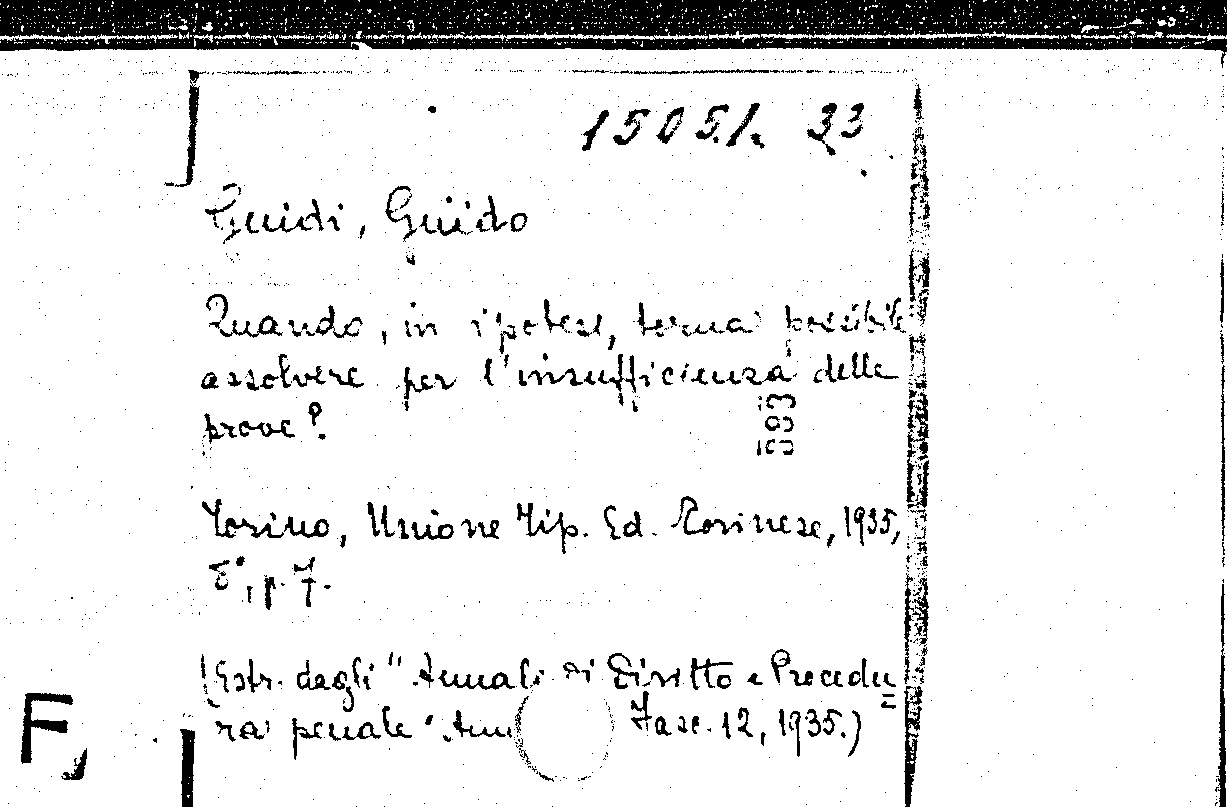 15051. 33
Guidi, Guido
Quando, in ipotesi, torna possibile
assolvere per l'insufficienza delle
prove?
593
Torino, Unione Tip. Ed. Torinese, 1935,
8°, p. 7.
(Estr. dagli "Annali di Diritto e Procedu=
ra penale" Fasc. 12, 1935.)
F